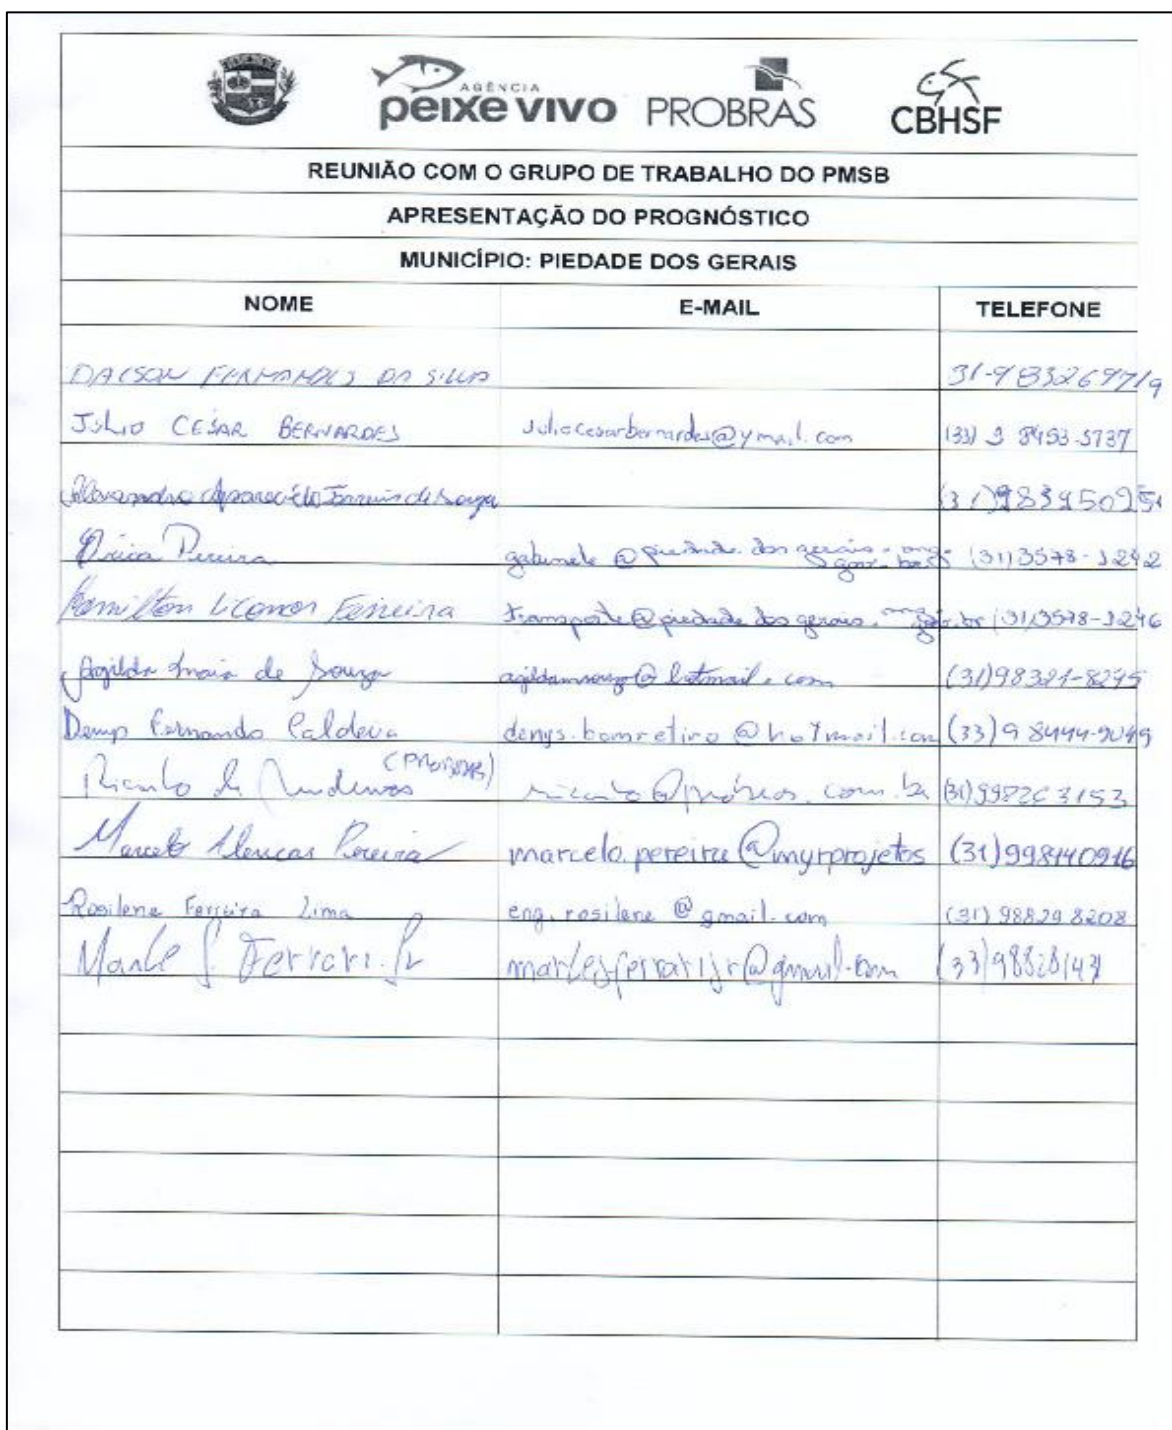 AGÊNCIA
peixe vivo PROBRAS CBHSF
REUNIÃO COM O GRUPO DE TRABALHO DO PMSB
APRESENTAÇÃO DO PROGNÓSTICO
MUNICÍPIO: PIEDADE DOS GERAIS
NOME E-MAIL TELEFONE
FERNANDES DA SILVA 31-983269719
JÚLIO CESAR BERNARDES juliocesarbernardes@ymail.com (33) 9 8453-5737
Aparecido de Souza
Pereira gabinete@piedade.dos gerais.mg. (31) 3578-1242
gov.br
Hamilton Ferreira transporte@piedade dos gerais.mg. (31) 3578-1246
gov.br
Agilda Maia de Souza @hotmail.com (31)98321-8245
Fernando Caldeira denys.bomretiro@hotmail.com (33) 9 8444-9049
Ricardo de (PROBRAS) ricardo@probras.com.br (31) 998263153
Marcelo Alencar Pereira marcelo.pereira@myrprojetos (31)998440916
Rosilene Ferreira Lima eng.rosilene@gmail.com (31) 98829 8208
Ferrari Jr @gmail.com